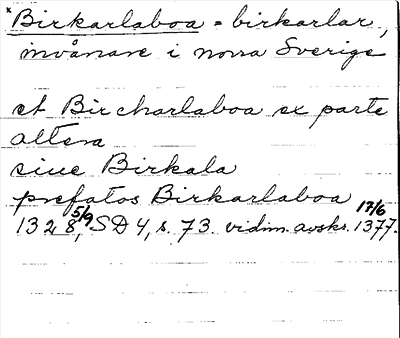 ×Birkarlaboa = birkarlar,
invånare i norra Sverige
et Bircharlaboa ex parte
altera
siue Birkala
prefatos Birkarlaboa
1328 5/9, SD 4, s. 73. vidim. avskr. 1377 17/6.